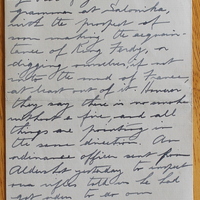 gramme at Salonika,
with the prospect of
soon making the acquain-
tance of King Ferdy, or
digging ourselves, if not
into the mud of France,
at least out of it. However
they say there is no smoke
without a fire, and all
things are pointing in
the same direction. An
ordinance officer sent from
Aldershot yesterday to inspect
our rifles told us he had
got orders to do our